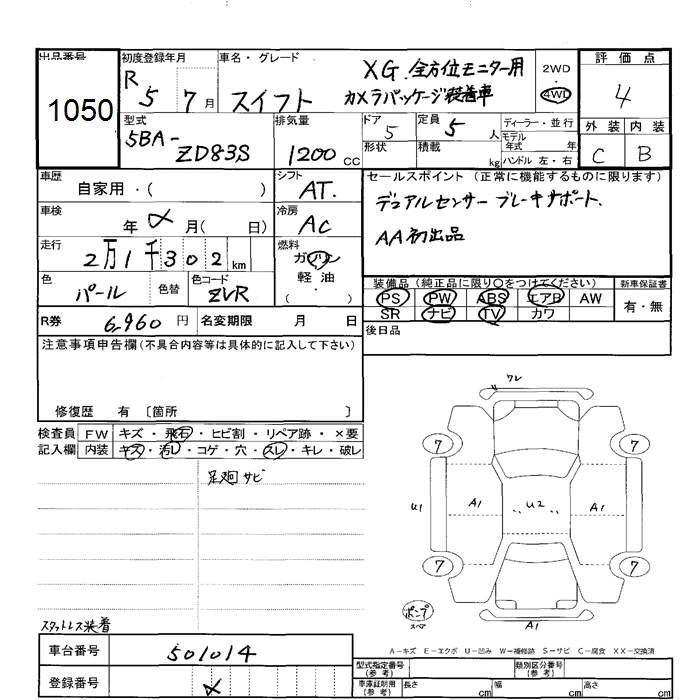 出品番号
1050
初度登録年月
R 5 7月
車名・グレード
スイフト
XG 全方位モニター用
カメラパッケージ装着車
2WD
4WD
評価点
4
外装 内装
C B
型式
5BA-
ZD83S
排気量
1200 cc
ドア
5
定員
5 人
形状
積載
kg
ディーラー・並行
モデル年式 年
ハンドル 左・右
車歴
自家用・( )
シフト
AT.
車検
年 月( 日)
冷房
AC
走行
2万1千302 km
燃料
ガソリン
軽油
( ・ )
色
パール
色替
色コード
ZVR
R券
6,960 円
名変期限 月 日
セールスポイント(正常に機能するものに限ります)
デュアルセンサーブレーキサポート.
AA初出品
装備品(純正品に限り○をつけてください)
PS PW ABS エアB AW
SR ナビ TV カワ
新車保証書
有・無
後日品
注意事項申告欄(不具合内容等は具体的に記入して下さい)
修復歴 有 〔箇所 〕
検査員
記入欄
FW キズ・飛石・ヒビ割・リペア跡・×要
内装 キズ・汚レ・コゲ・穴・スレ・キレ・破レ
足廻サビ
ワレ
7 7
U1 A1 U2 A1
7 7
ポンプ
スペア
A1
スタットレス装着
A-キズ E-エクボ U-凹み W-補修跡 S-サビ C-腐食 XX-交換済
車台番号 501014
登録番号
型式指定番号(参考)
類別区分番号(参考)
車庫証明用(参考) 長さ cm 幅 cm 高さ cm